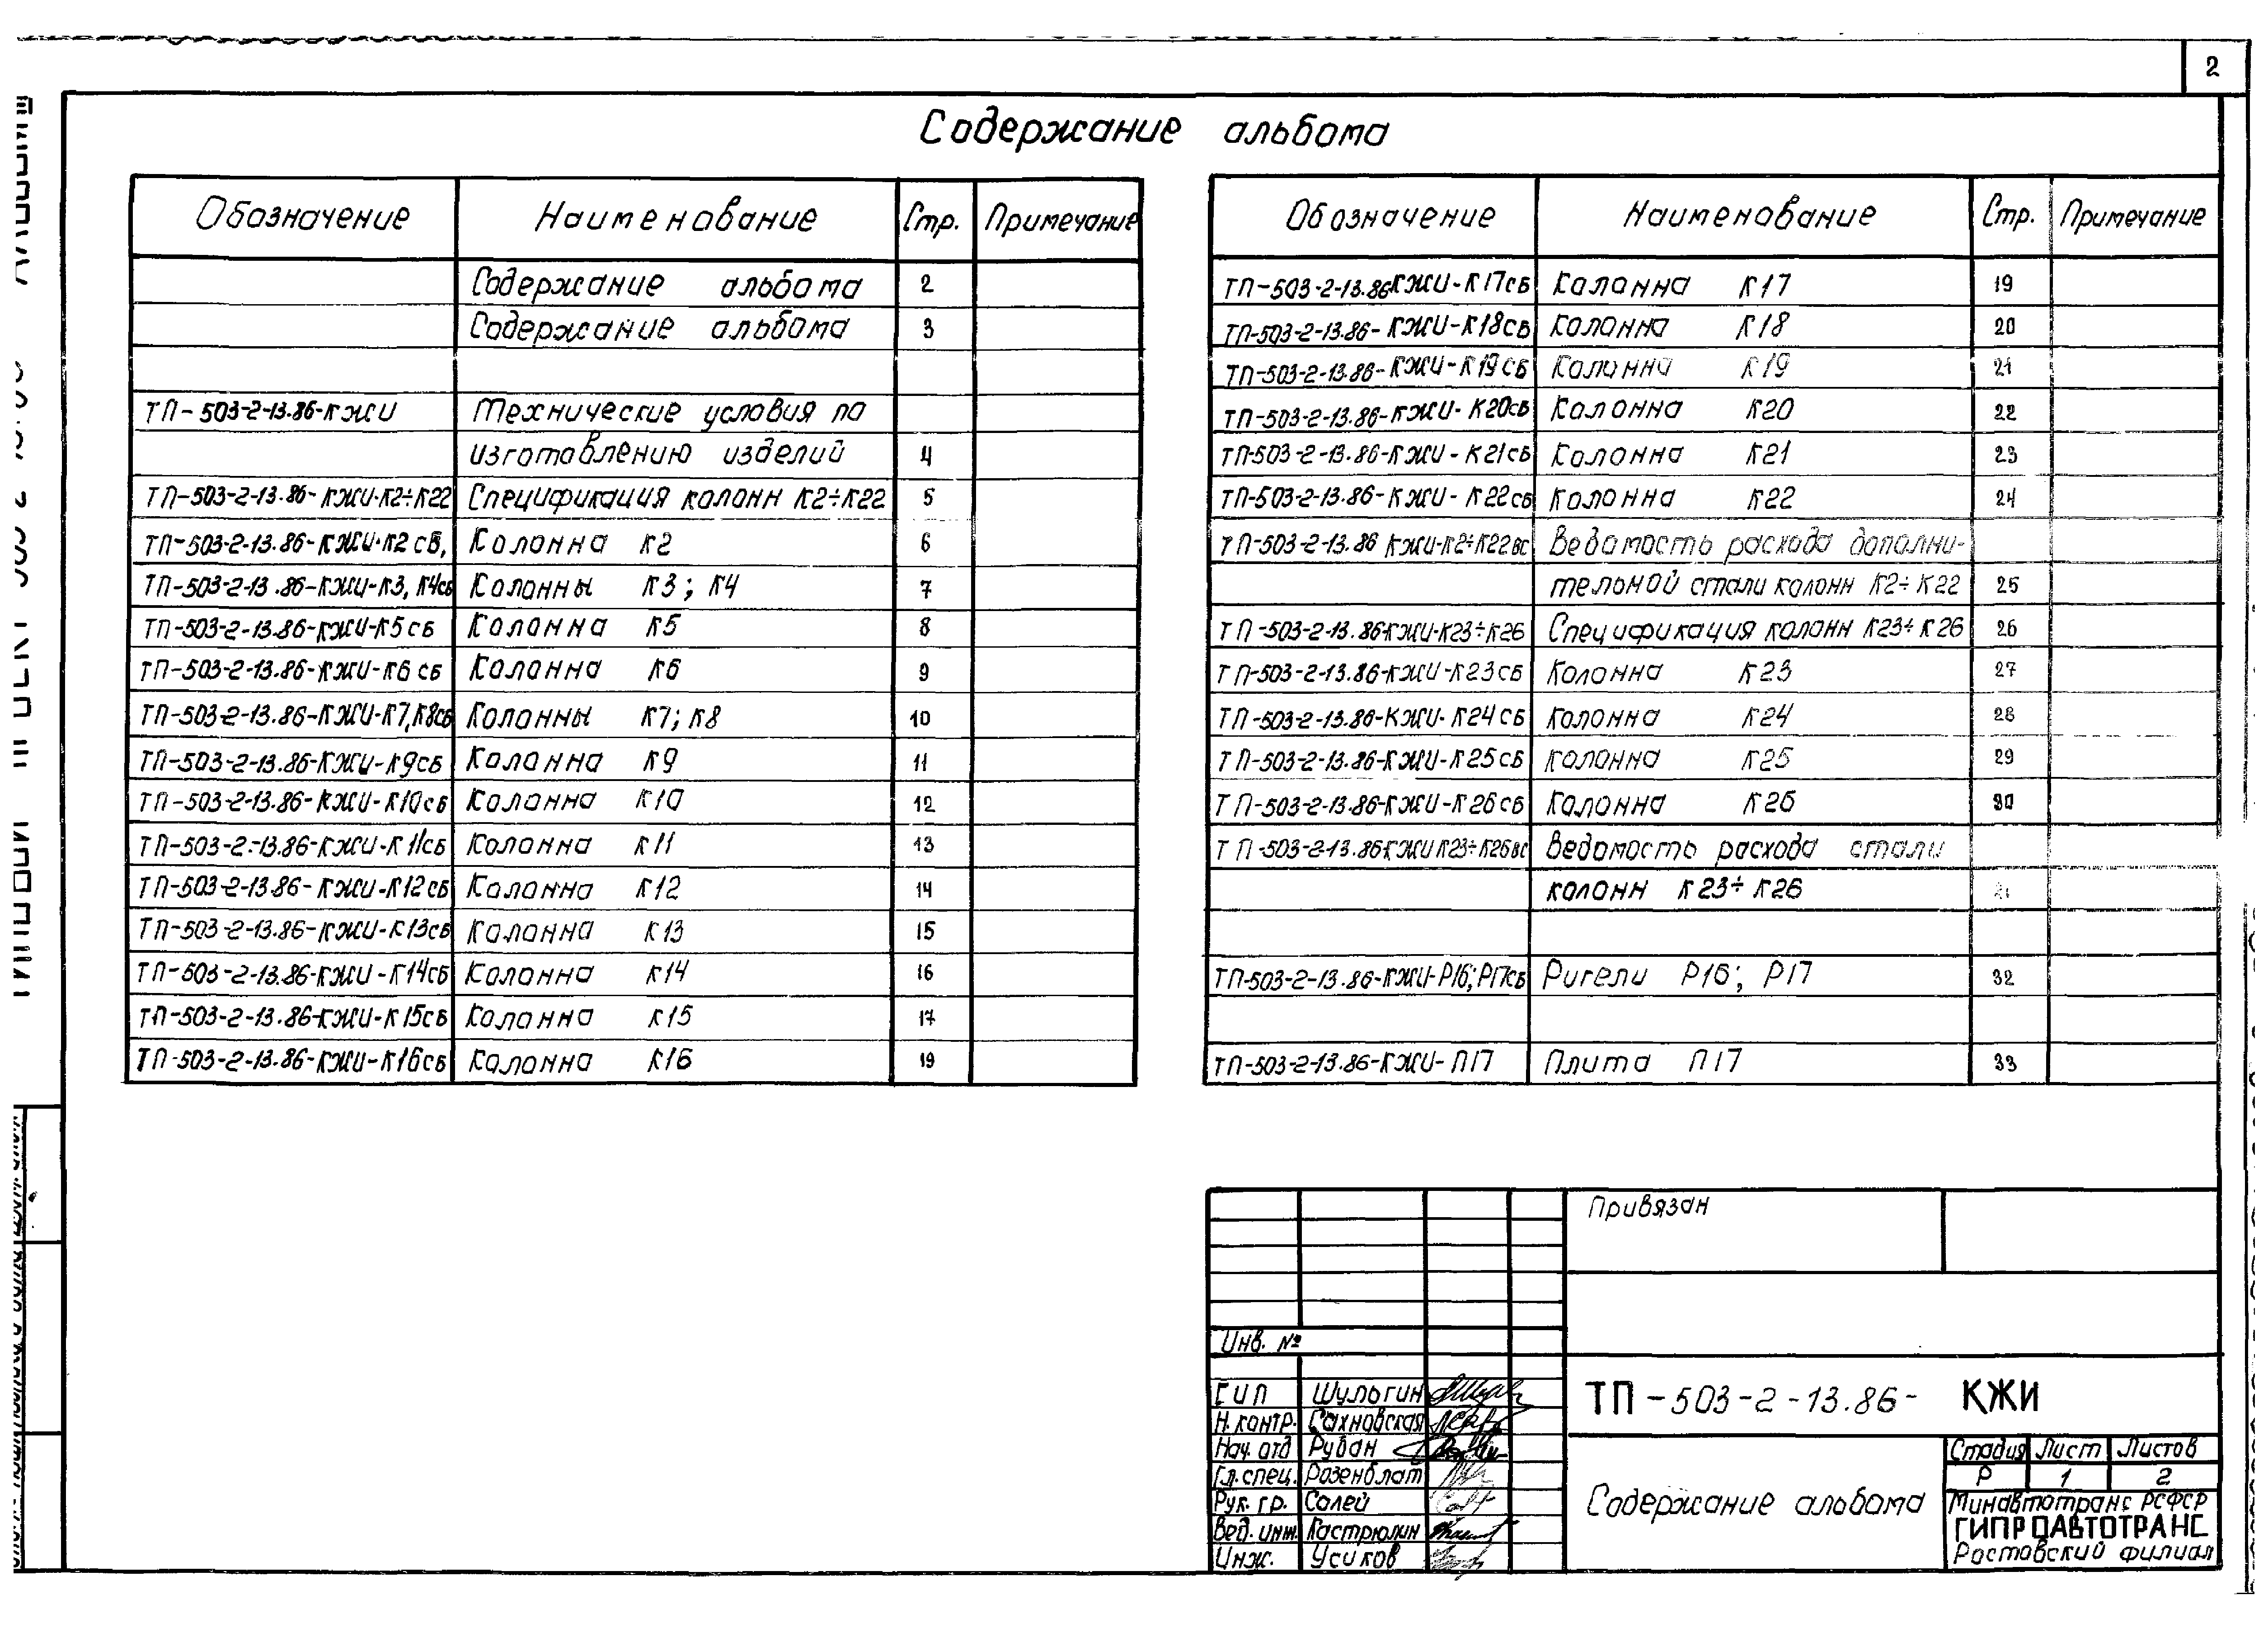 2
Содержание альбома
Обозначение Наименование Стр. Примечание
Содержание альбома 2
Содержание альбома 3
ТП-503-2-13.86-КЖИ Технические условия по
изготовлению изделий 4
ТП-503-2-13.86-КЖИ-К2÷К22 Спецификация колонн К2÷К22 5
ТП-503-2-13.86-КЖИ-К2сб, Колонна К2 6
ТП-503-2-13.86-КЖИ-К3, К4сб Колонны К3; К4 7
ТП-503-2-13.86-КЖИ-К5сб Колонна К5 8
ТП-503-2-13.86-КЖИ-К6сб Колонна К6 9
ТП-503-2-13.86-КЖИ-К7,К8сб Колонны К7; К8 10
ТП-503-2-13.86-КЖИ-К9сб Колонна К9 11
ТП-503-2-13.86-КЖИ-К10сб Колонна К10 12
ТП-503-2-13.86-КЖИ-К11сб Колонна К11 13
ТП-503-2-13.86-КЖИ-К12сб Колонна К12 14
ТП-503-2-13.86-КЖИ-К13сб Колонна К13 15
ТП-503-2-13.86-КЖИ-К14сб Колонна К14 16
ТП-503-2-13.86-КЖИ-К15сб Колонна К15 17
ТП-503-2-13.86-КЖИ-К16сб Колонна К16 19
Обозначение Наименование Стр. Примечание
ТП-503-2-13.86КЖИ-К17сб Колонна К17 19
ТП-503-2-13.86-КЖИ-К18сб Колонна К18 20
ТП-503-2-13.86-КЖИ-К19сб Колонна К19 21
ТП-503-2-13.86-КЖИ-К20сб Колонна К20 22
ТП-503-2-13.86-КЖИ-К21сб Колонна К21 23
ТП-503-2-13.86-КЖИ-К22сб Колонна К22 24
ТП-503-2-13.86 КЖИ-К2÷К22вс Ведомость расхода дополни-
тельной стали колонн К2÷К22 25
ТП-503-2-13.86КЖИ-К23÷К26 Спецификация колонн К23÷К26 26
ТП-503-2-13.86-КЖИ-К23сб Колонна К23 27
ТП-503-2-13.86-КЖИ-К24сб Колонна К24 28
ТП-503-2-13.86-КЖИ-К25сб Колонна К25 29
ТП-503-2-13.86-КЖИ-К26сб Колонна К26 30
ТП-503-2-13.86КЖИК23÷К26вс Ведомость расхода стали
колонн К23÷К26
ТП-503-2-13.86-КЖИ-Р16;Р17сб Ригели Р16; Р17 32
ТП-503-2-13.86-КЖИ-П17 Плита П17 33
Привязан
Инв. №
ГИП Шульгин
Н.контр. Сахновская
Нач. отд Рубан
Гл.спец. Розенблат
Рук. гр. Солей
Вед. инж. Кастрюлин
Инж. Усиков
ТП-503-2-13.86- КЖИ
Содержание альбома
Стадия Лист Листов
Р 1 2
Минавтотранс РСФСР
ГИПРОАВТОТРАНС
Ростовский филиал